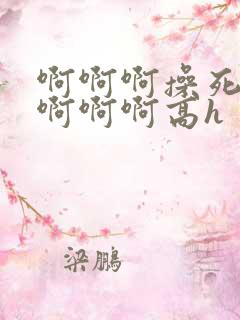 啊啊啊操死
啊啊啊高h
梁鹏